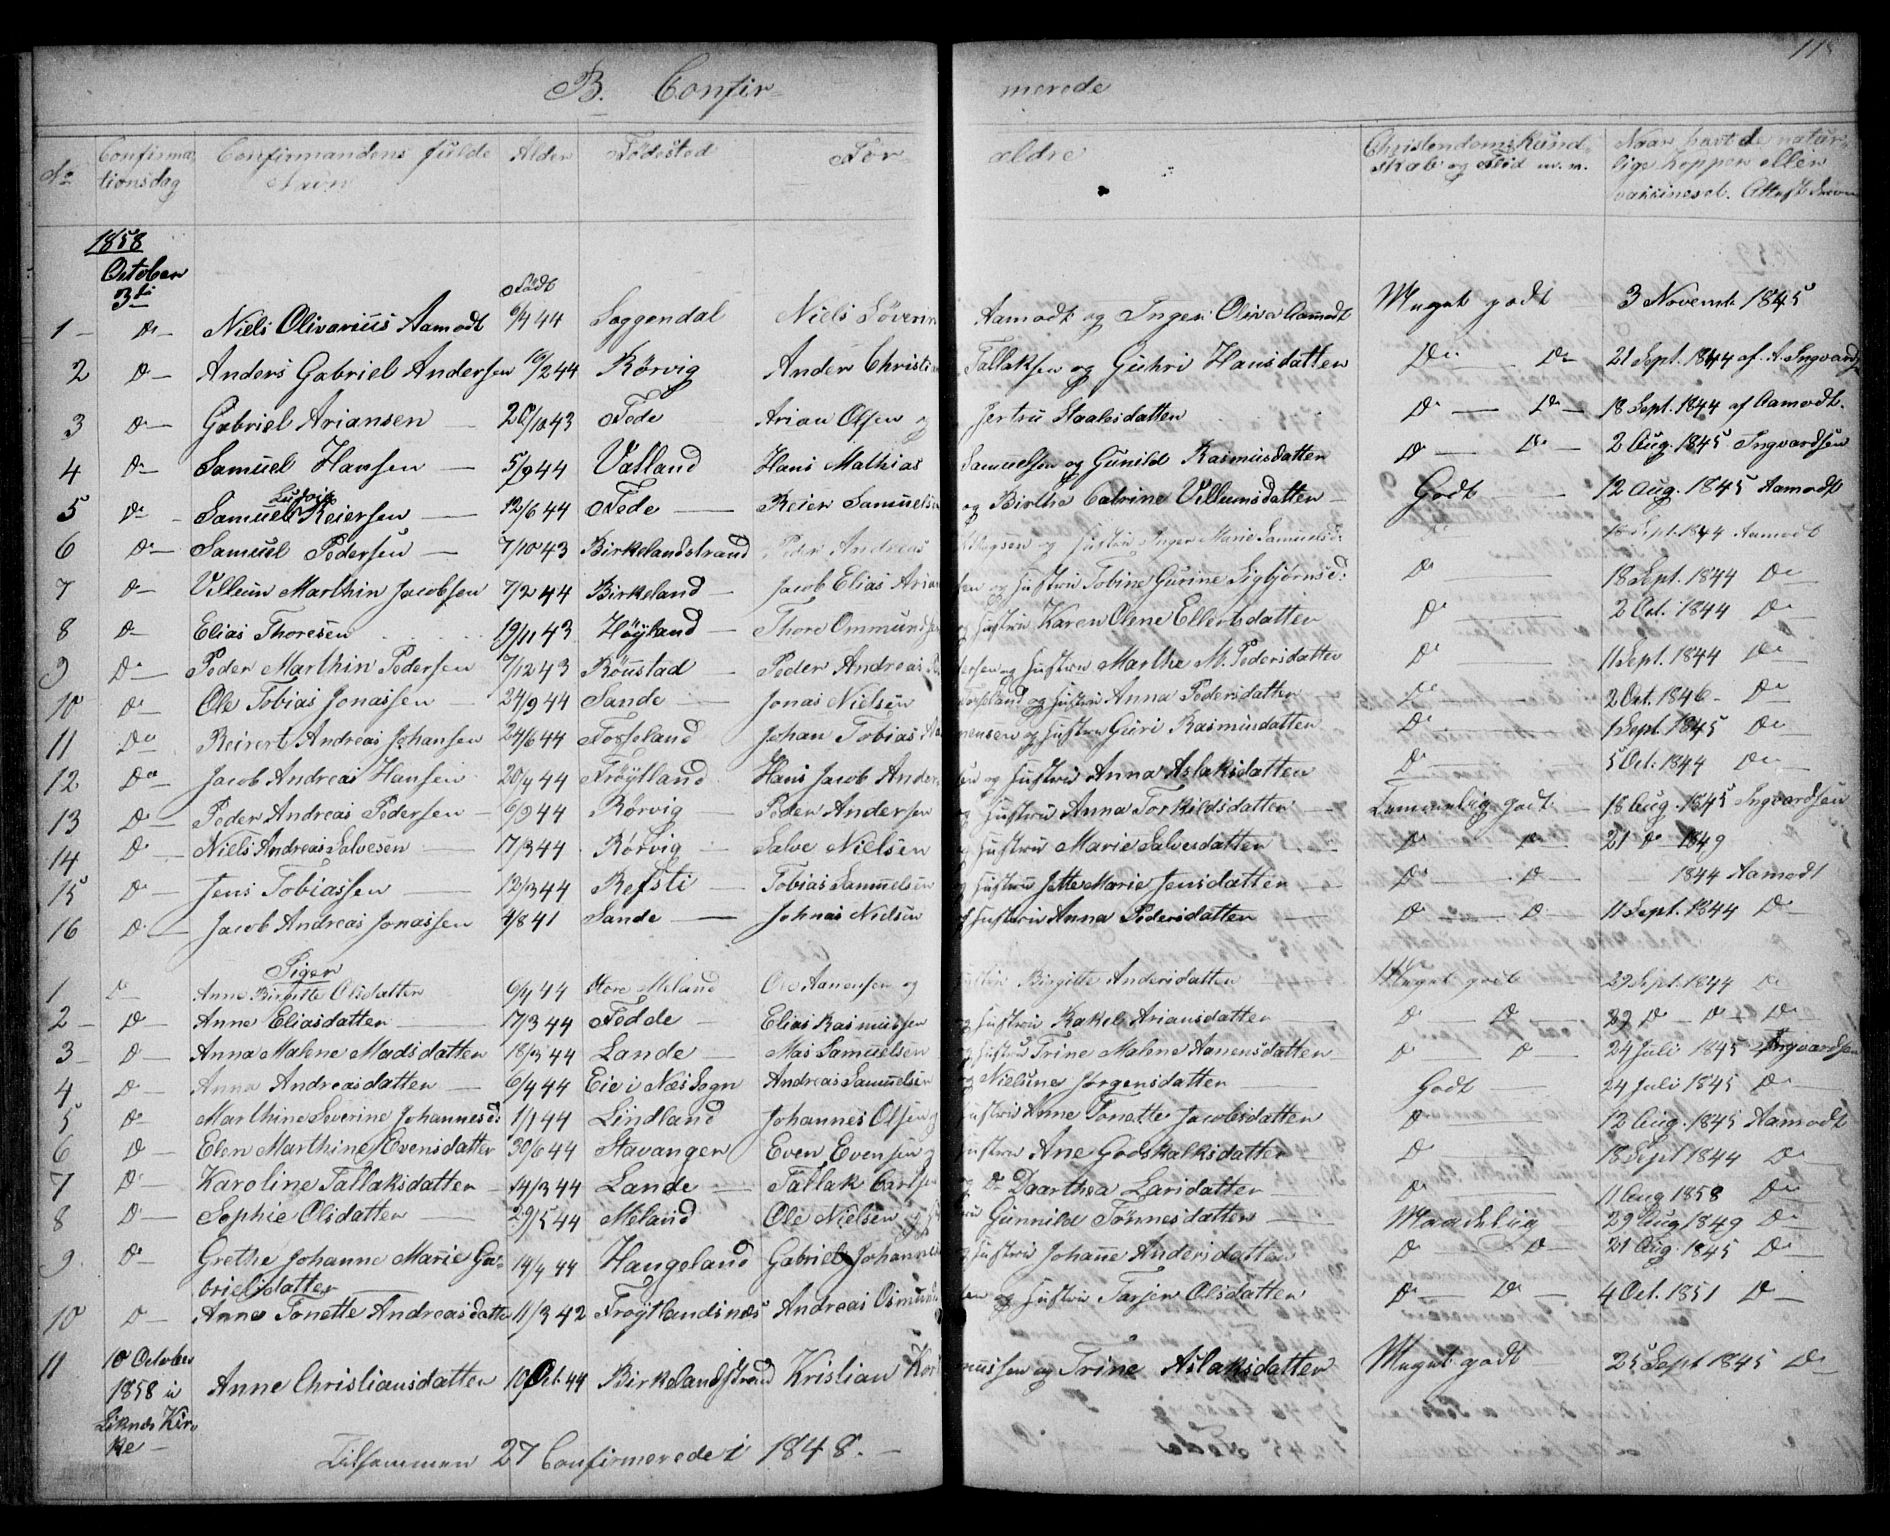 118
B. Confirmerede
No Confirmationsdag Confirmandens fulde Navn Alder Fødested Forældre Christendomskundskab og Flid m.m. Naar havt de naturlige Kopper eller vaccineret. Attest derom
1858
October
3die
Født
1 — Do — Niels Olivarius Aamodt 6/4 44 Soggendal Niels Søverin Aamodt og Inger Oliva Aamodt Meget godt 3 Novemb 1845
2 Do — Anders Gabriel Andersen 10/2 44 Rørvig Anders Christian Tallaksen og Guhri Hansdatter Do — Do 21 Sept. 1844 af A. Ingvardsen
3 Do — Gabriel Ariansen — 26/10 43 Fede Arian Olsen og Jertru Isaaksdatter Do — Do — 18 Sept. 1844 af Aamodt.
4 Do — Samuel Hansen — 5/9 44 Valland Hans Mathias Samuelsen og Gunild Rasmusdatter Do — Do — 2 Aug. 1845 Ingvardsen
5 Do — Samuel Ludvig Reiersen — 12/6 44 Fede — Reier Samuelsen og Birthe Catrine Villumsdatter — Godt — 12 Aug. 1845 Aamodt
6 Do — Samuel Pedersen — 7/10 43 Birkelandstrand Peder Andreas og Hustru Inger Marie Samuelsd: Do — Sept. 1844 Aamodt
7 Do — Villum Marthin Jacobsen 7/2 44 Birkeland — Jacob Elias Ariansen og Hustru Tobine Gurine Sigbjørnsd: Do — 18 Sept. 1844 Do —
8 Do — Elias Thoresen 19/11 43 Høyland — Thore Ommundsen og Hustru Karen Olene Ellertsdatter Do — 2 Oct. 1844 Do —
9 Do — Peder Marthin Pedersen 7/12 43 Rønstad — Peder Andreas Pedersen og Hustru Marthe M. Pedersdatter Do — 11 Sept. 1844 Do —
10 Do — Ole Tobias Jonassen — 24/9 44 Sande — Jonas Nielsen og Hustru Anna Pedersdatter Do — 2 Oct. 1846 — Do
11 Do Reinert Andreas Johansen 24/6 44 Fosseland Johan Tobias og Hustru Guri Rasmusdatter Do — 1 Sept. 1845 Do
12 Do Jacob Andreas Hansen 20/4 44 Frøytland Hans Jacob Andersen og Hustru Anna Aslaksdatter Do — 5 Oct. 1844 Do —
13 Do — Peder Andreas Pedersen — 6/9 44 Rørvig — Peder Andersen og Hustru Anna Torkildsdatter — Temmelig godt — 18 Aug. 1845 Ingvardsen
14 Do — Niels Andreas Salvesen — 17/3 44 Rørvig — Salve Nielsen og Hustru Marie Salvesdatter — Do — Do — 21 Do 1849
15 Do — Jens Tobiassen — 12/3 44 Refsti — Tobias Samuelsen og Hustru Jette Marie Jensdatter — Do — Do — 1844 Aamodt
16 Do — Jacob Andreas Jonassen 4/8 41 Sande — Johnas Nielsen og Hustru Anna Pedersdatter — Do — Do — 11 Sept. 1844 Do —
Piger
1 Do — Anne Birgitte Olsdatter 6/4 44 Store Meland Ole Aanensen og Hustru Birgitte Andersdatter — Meget godt 29 Sept. 1844 Do
2 — Do — Anne Eliasdatter — 17/3 44 Fedde — Elias Rasmussen og Hustru Rakel Ariansdatter — Do Do — 29 Do — Do Do
3 — Do — Anna Malene Madsdatter 18/3 44 Lande — Mas Samuelsen og Hustru Trine Malene Aanensdatter — Do — Do — 24 Juli 1845 Ingvardsen
4 Do — Anna Andreasdatter — 6/4 44 Eie i Næs Sogn Andreas Samuelsen og Nielsine Jørgensdatter — Godt — 24 Juli 1845 Do —
5 Do — Marthine Severine Johannesd: 1/1 44 Lindland Johannes Olsen og Hustru Anne Tonette Jacobsdatter Do — 12 Aug. 1845 Aamodt
6 Do — Elen Marthine Evensdatter 30/6 44 Stavanger Even Evensen og Hustru Ane Godskalksdatter — Do — 18 Sept 1844 Do —
7 Do — Karoline Tallaksdatter — 14/3 44 Lande — Tallak Carlsen og Do Daarthea Larsdatter Do — 11 Aug 1858 Do
8 Do — Sophie Olsdatter — 29/5 44 Meland Ole Nielsen og Hustru Gunnild Tønnesdatter — Maadelig — 29 Aug 1849 Do —
9 Do — Grethe Johanne Marie Ga-
brielsdatter 14/4 44 Haugeland Gabriel Johannes og Hustru Johane Andersdatter Do — Do — 21 Aug. 1845 Do —
10 Do — Anne Tonette Andreasdatter 11/3 42 Frøytlandsnæs Andreas Osmundsen og Hustru Tarjer Olsdatter Do — Do — 4 Oct. 1851 Do —
11 10 October
1858 i
Liknes Kir-
ke — Anne Christiansdatter 10 Oct 44 Birkelandstrand Kristian Rasmussen og Trine Aslaksdatter Meget godt 25 Sept 1845 Do
Tilsammen 27 Confirmerede i 1848. —